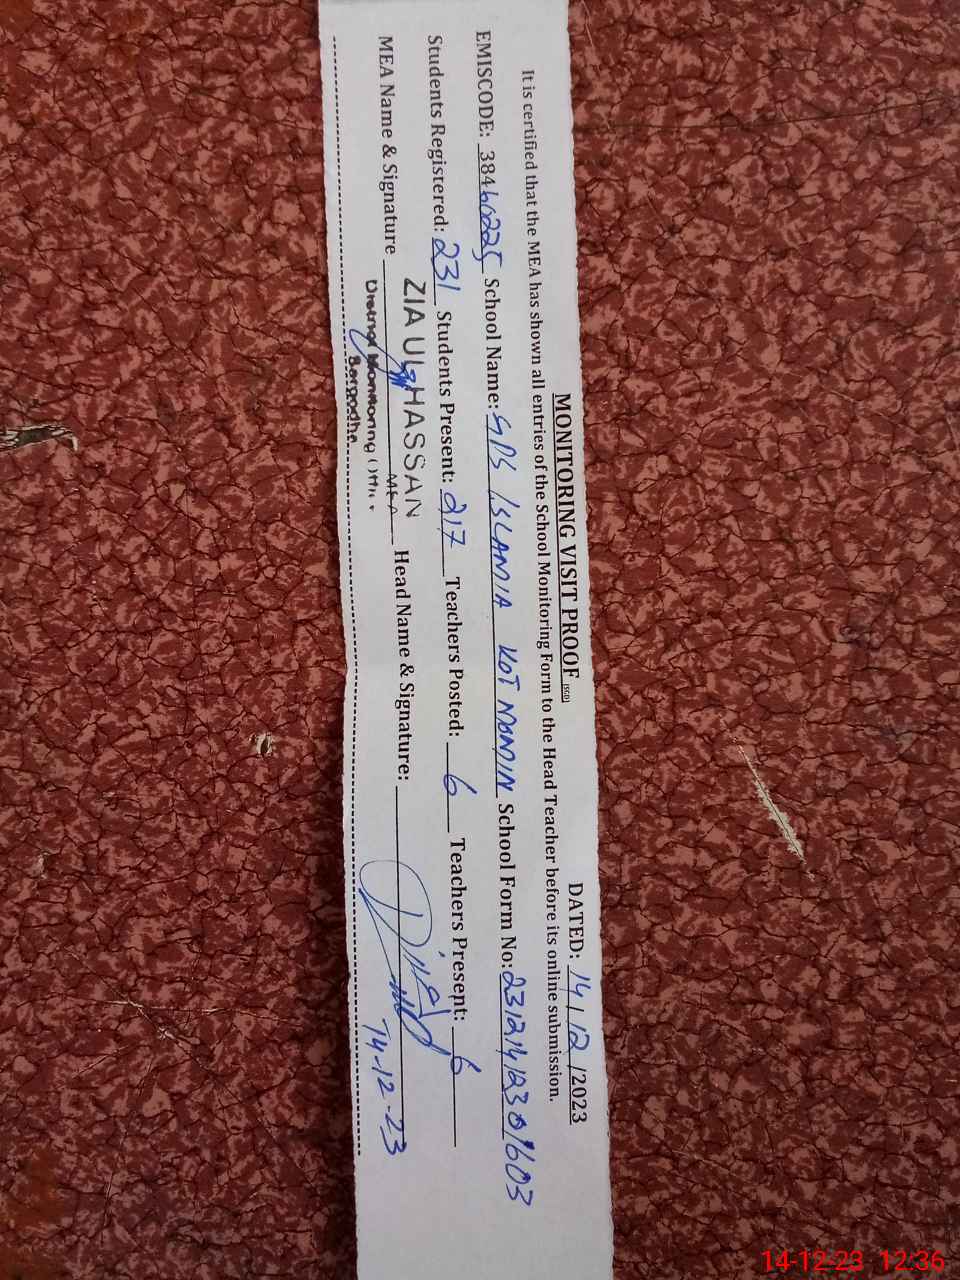 MONITORING VISIT PROOF (SED) DATED: 14/12/2023
It is certified that the MEA has shown all entries of the School Monitoring Form to the Head Teacher before its online submission.
EMISCODE: 38460225 School Name: GPS ISLAMIA KOT MOMIN School Form No: 23121412301603
Students Registered: 231 Students Present: 217 Teachers Posted: 6 Teachers Present: 6
ZIA UL HASSAN
MEA Name & Signature MEA Head Name & Signature:
District Monitoring Office
Sargodha
14-12-23
14-12-23 12:36